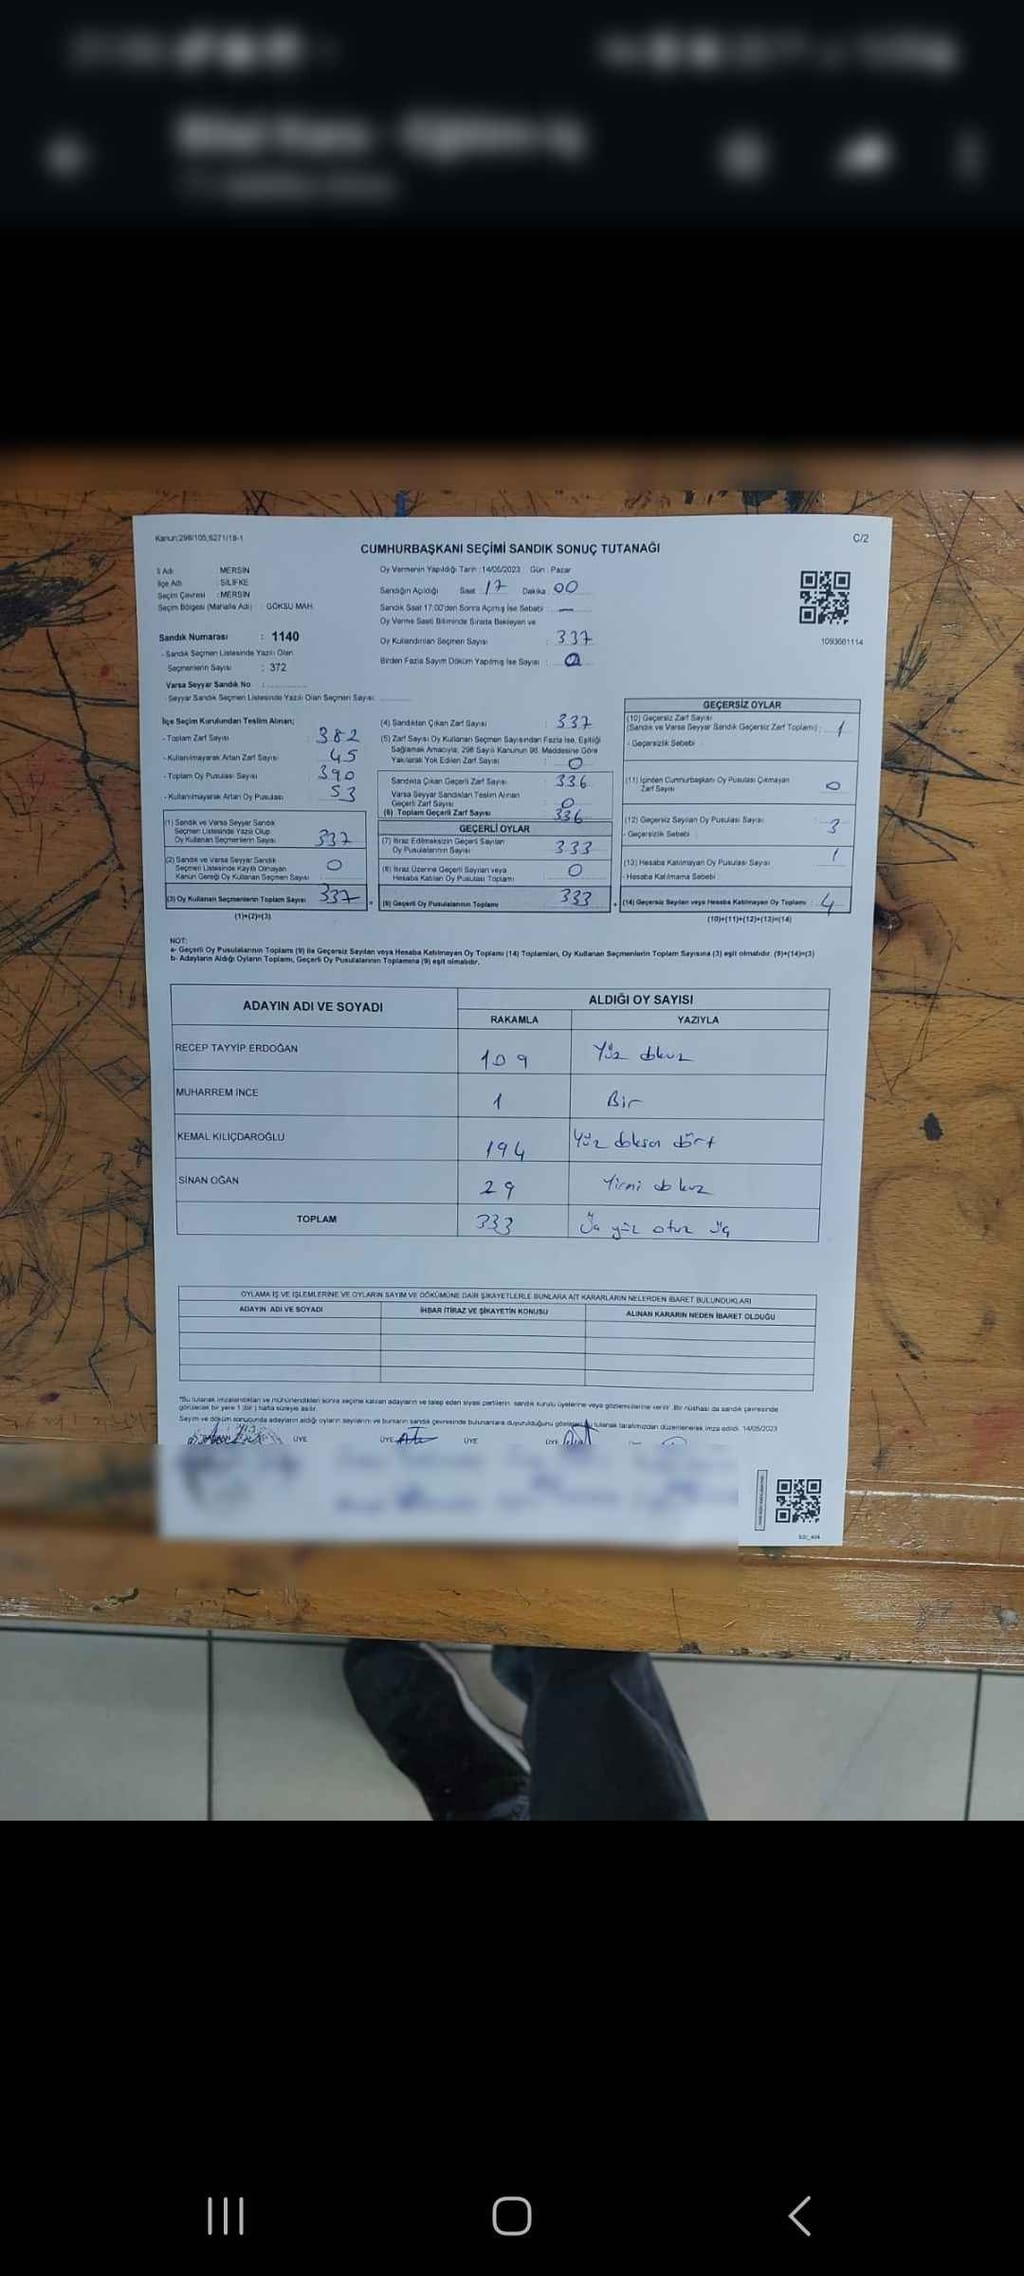 Kanun:298/105;6271/18-1
C/2
CUMHURBAŞKANI SEÇİMİ SANDIK SONUÇ TUTANAĞI
İl Adı MERSİN
İlçe Adı SİLİFKE
Seçim Çevresi : MERSİN
Seçim Bölgesi (Mahalle Adı) : GÖKSU MAH.
Sandık Numarası : 1140
- Sandık Seçmen Listesinde Yazılı Olan
Seçmenlerin Sayısı : 372
Varsa Seyyar Sandık No :
- Seyyar Sandık Seçmen Listesinde Yazılı Olan Seçmen Sayısı:
Oy Vermenin Yapıldığı Tarih :14/05/2023 Gün : Pazar
Sandığın Açıldığı Saat : 17 Dakika : 00
Sandık Saat 17:00'den Sonra Açmış İse Sebebi : —
Oy Verme Saati Bitiminde Sırada Bekleyen ve
Oy Kullandırılan Seçmen Sayısı : 337
Birden Fazla Sayım Döküm Yapılmış İse Sayısı : 0
1093661114
İlçe Seçim Kurulundan Teslim Alınan;
- Toplam Zarf Sayısı 382
- Kullanılmayarak Artan Zarf Sayısı 45
- Toplam Oy Pusulası Sayısı 390
- Kullanılmayarak Artan Oy Pusulası 53
(1) Sandık ve Varsa Seyyar Sandık
Seçmen Listesinde Yazılı Olup
Oy Kullanan Seçmenlerin Sayısı 337
(2) Sandık ve Varsa Seyyar Sandık
Seçmen Listesinde Kayıtlı Olmayan
Kanun Gereği Oy Kullanan Seçmen Sayısı 0
(3) Oy Kullanan Seçmenlerin Toplam Sayısı 337
(1)+(2)=(3)
(4) Sandıktan Çıkan Zarf Sayısı : 337
(5) Zarf Sayısı Oy Kullanan Seçmen Sayısından Fazla İse, Eşitliği
Sağlamak Amacıyla; 298 Sayılı Kanunun 98. Maddesine Göre
Yakılarak Yok Edilen Zarf Sayısı : 0
Sandıkta Çıkan Geçerli Zarf Sayısı : 336
Varsa Seyyar Sandıktan Teslim Alınan
Geçerli Zarf Sayısı : 0
(6) Toplam Geçerli Zarf Sayısı 336
GEÇERLİ OYLAR
(7) İtiraz Edilmeksizin Geçerli Sayılan
Oy Pusulalarının Sayısı : 333
(8) İtiraz Üzerine Geçerli Sayılan veya
Hesaba Katılan Oy Pusulası Toplamı : 0
(9) Geçerli Oy Pusulalarının Toplamı 333
GEÇERSİZ OYLAR
(10) Geçersiz Zarf Sayısı
(Sandık ve Varsa Seyyar Sandık Geçersiz Zarf Toplamı) : 1
- Geçersizlik Sebebi
(11) İçinden Cumhurbaşkanı Oy Pusulası Çıkmayan
Zarf Sayısı : 0
(12) Geçersiz Sayılan Oy Pusulası Sayısı : 3
- Geçersizlik Sebebi
(13) Hesaba Katılmayan Oy Pusulası Sayısı 1
- Hesaba Katılmama Sebebi
(14) Geçersiz Sayılan veya Hesaba Katılmayan Oy Toplamı : 4
(10)+(11)+(12)+(13)=(14)
NOT:
a- Geçerli Oy Pusulalarının Toplamı (9) ile Geçersiz Sayılan veya Hesaba Katılmayan Oy Toplamı (14) Toplamları, Oy Kullanan Seçmenlerin Toplam Sayısına (3) eşit olmalıdır. (9)+(14)=(3)
b- Adayların Aldığı Oyların Toplamı, Geçerli Oy Pusulalarının Toplamına (9) eşit olmalıdır.
ADAYIN ADI VE SOYADI ALDIĞI OY SAYISI
RAKAMLA YAZIYLA
RECEP TAYYİP ERDOĞAN 109 Yüz dokuz
MUHARREM İNCE 1 Bir
KEMAL KILIÇDAROĞLU 194 Yüz doksan dört
SİNAN OĞAN 29 Yirmi dokuz
TOPLAM 333 Üç yüz otuz üç
OYLAMA İŞ VE İŞLEMLERİNE VE OYLARIN SAYIM VE DÖKÜMÜNE DAİR ŞİKAYETLERLE BUNLARA AİT KARARLARIN NELERDEN İBARET BULUNDUKLARI
ADAYIN ADI VE SOYADI İHBAR İTİRAZ VE ŞİKAYETİN KONUSU ALINAN KARARIN NEDEN İBARET OLDUĞU
*Bu tutanak imzalandıktan ve mühürlendikten sonra seçime katılan adayların ve talep eden siyasi partilerin sandık kurulu üyelerine veya gözlemcilerine verilir. Bir nüshası da sandık çevresinde
görülecek bir yere 1 (bir) hafta süreyle asılır.
Sayım ve döküm sonucunda adayların aldığı oyların sayılarını ve bunların sandık çevresinde bulunanlara duyurulduğunu gösteren bu tutanak tarafımızdan düzenlenerek imza edildi. 14/05/2023
ÜYE ÜYE ÜYE ÜYE